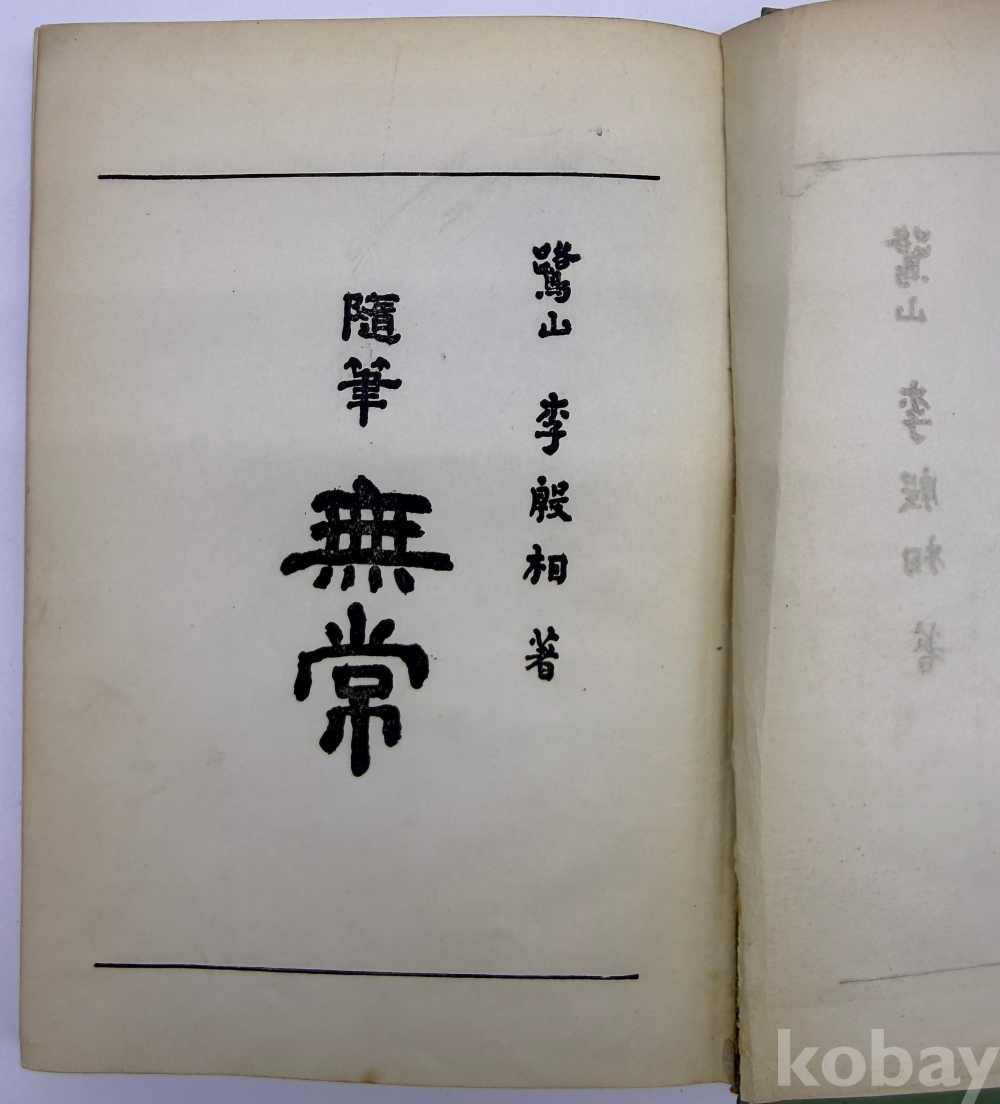 鷺山 李殷相 著
隨筆 無常
kobay